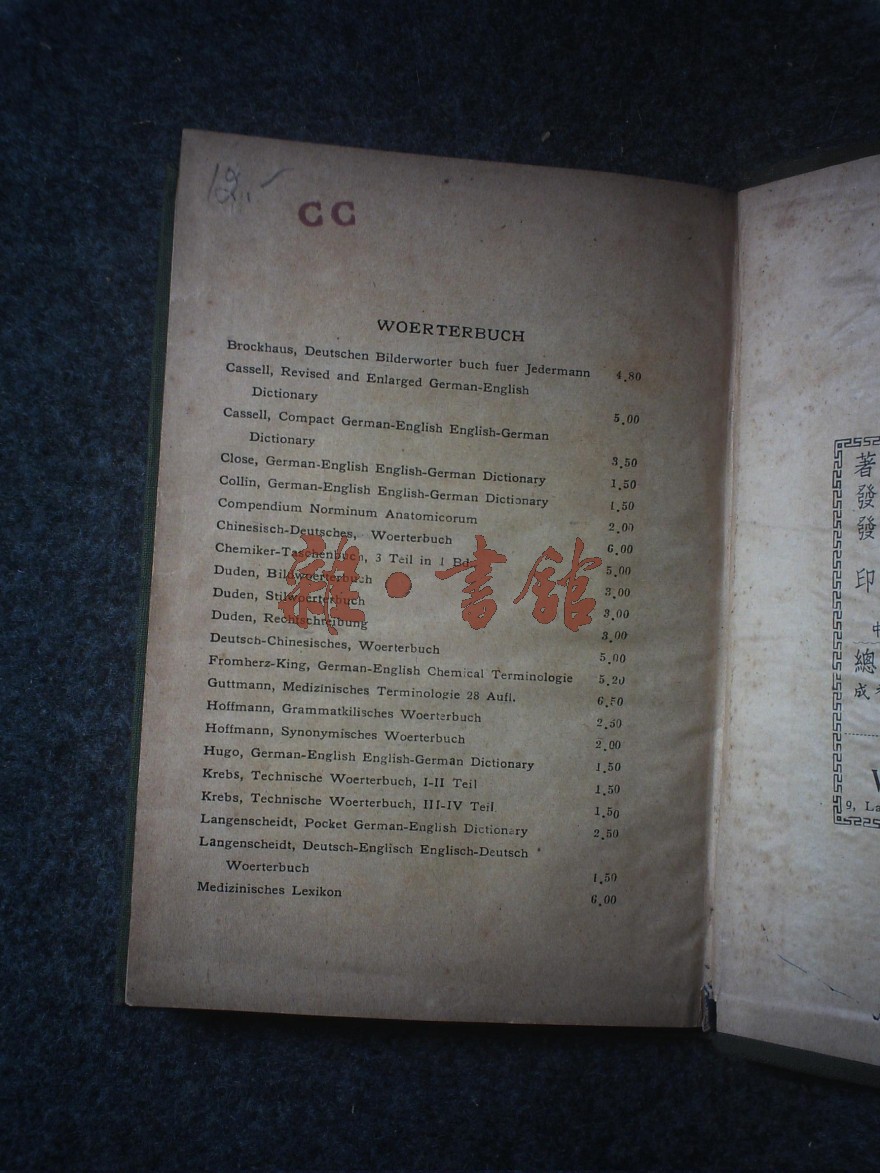 CC
WOERTERBUCH
Brockhaus, Deutschen Bilderworter buch fuer Jedermann 4.80
Cassell, Revised and Enlarged German-English
Dictionary 5.00
Cassell, Compact German-English English-German
Dictionary 3.50
Close, German-English English-German Dictionary 1.50
Collin, German-English English-German Dictionary 1.50
Compendium Norminum Anatomicorum 2.00
Chinesisch-Deutsches, Woerterbuch 6.00
Chemiker-Taschenbuch, 3 Teil in 1 Bd. 5.00
Duden, Bildwoerterbuch 3.00
Duden, Stilwoerterbuch 3.00
Duden, Rechtschreibung 3.00
Deutsch-Chinesisches, Woerterbuch 5.00
Fromherz-King, German-English Chemical Terminologie 5.20
Guttmann, Medizinisches Terminologie 28 Aufl. 6.50
Hoffmann, Grammatkilisches Woerterbuch 2.50
Hoffmann, Synonymisches Woerterbuch 2.00
Hugo, German-English English-German Dictionary 1.50
Krebs, Technische Woerterbuch, I-II Teil 1.50
Krebs, Technische Woerterbuch, III-IV Teil 1.50
Langenscheidt, Pocket German-English Dictionary 2.50
Langenscheidt, Deutsch-Englisch Englisch-Deutsch
Woerterbuch 1.50
Medizinisches Lexikon 6.00
雜·書館
著
發
發
印
總
成
9, La